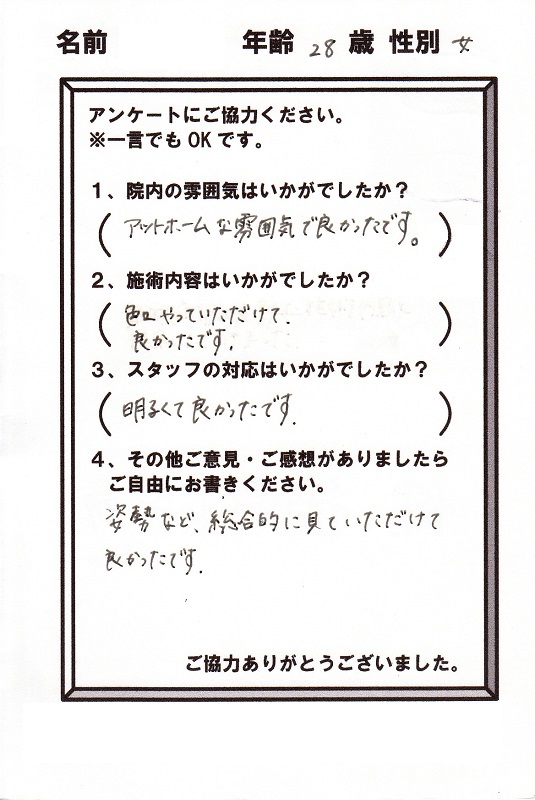 名前 年齢 28 歳 性別 女
アンケートにご協力ください。
※一言でも OK です。
1、院内の雰囲気はいかがでしたか？
(アットホームな雰囲気で良かったです。)
2、施術内容はいかがでしたか？
(色々やっていただけて、
良かったです。)
3、スタッフの対応はいかがでしたか？
(明るくて良かったです.)
4、その他ご意見・ご感想がありましたら
ご自由にお書きください。
姿勢など、総合的に見ていただけて
良かったです.
ご協力ありがとうございました。